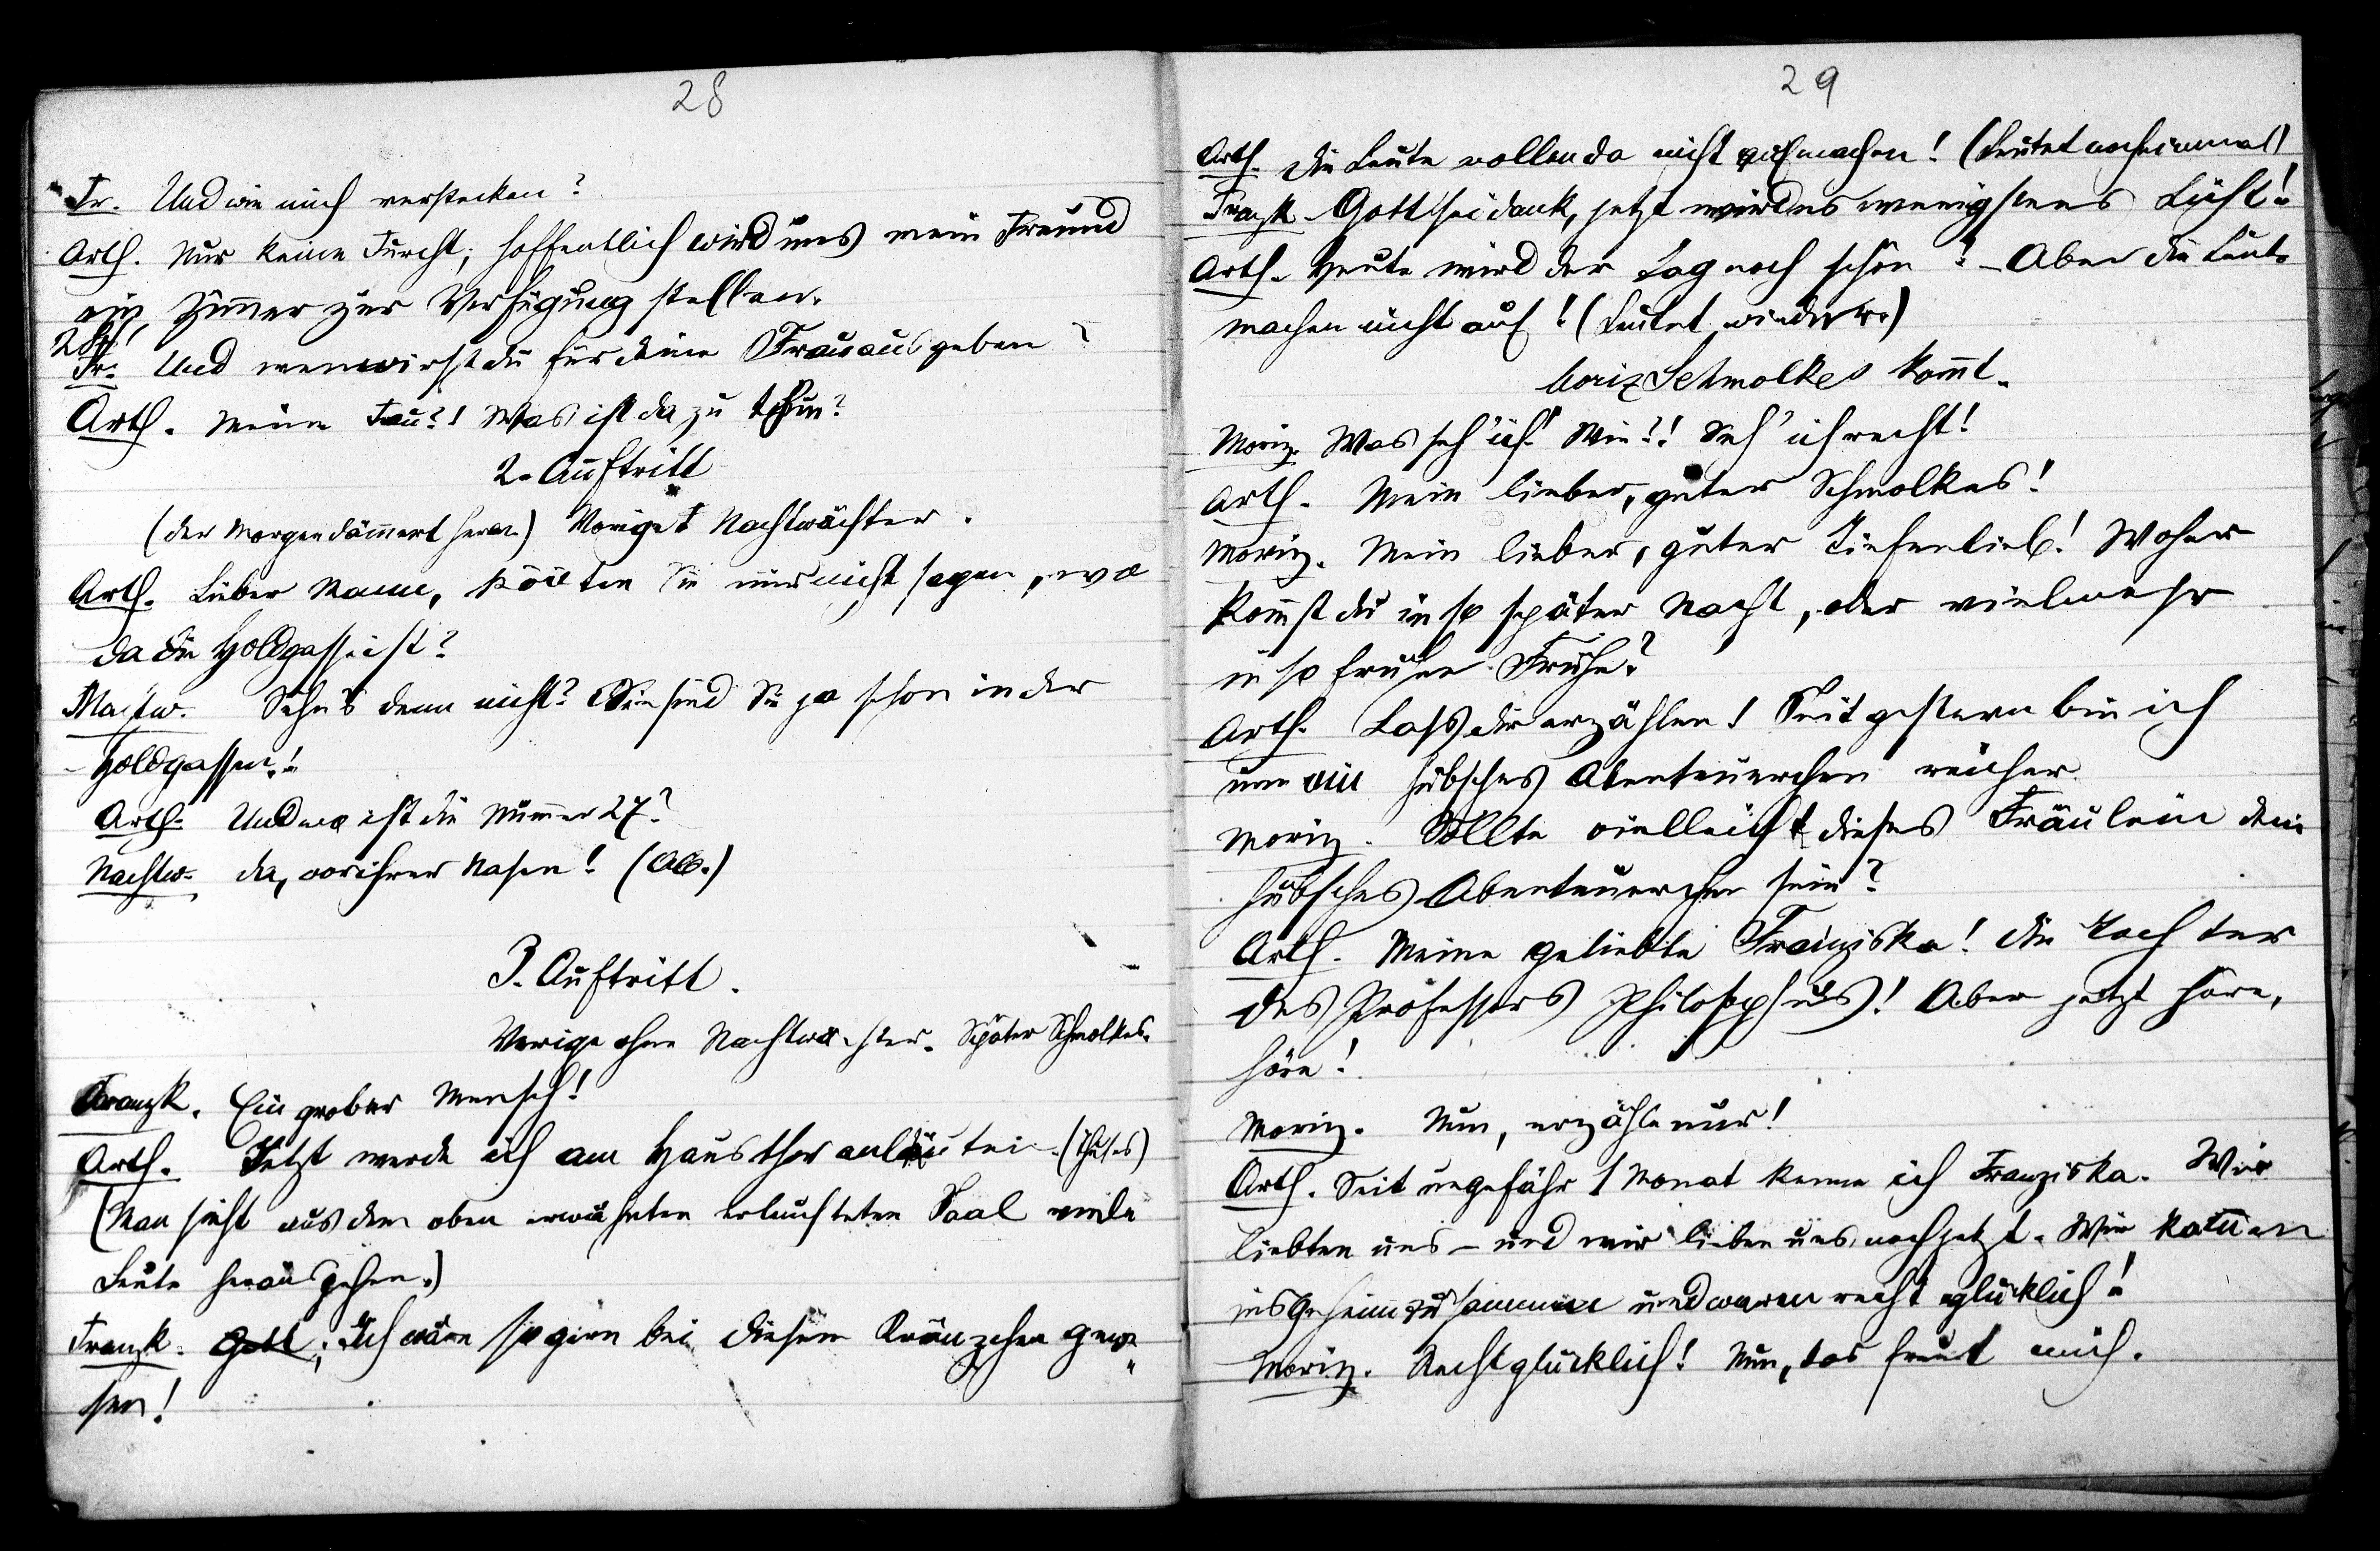 28
Fr. Und wie mich verstecken?
Arth. Nur keine Furcht, hoffentlich wird uns mein Freund
ein Zimmer zur Verfügung stellen.
Fr. Und wen wirst du für deine Frau ausgeben?
Arth. Meine Frau?! Was ist da zu thun?
2. Auftritt
(Der Morgen dämmert heran.) Vorige & Nachtwächter.
Arth. Lieber Mann, könten Sie mir nicht sagen, wo
da die Holdgasse ist?
Nachtw. Sehn's denn nicht? Sie sind Sie ja schon in der
Holdgassen!
Arth. Und wo ist die Numer 27?
Nachtw. Da, vor ihrer Nasen! (Ab.)
3. Auftritt.
Vorige ohne Nachtwächter. Später Schmolkes.
Franzk. Ein grober Mensch!
Arth. Jetzt werde ich am Hausthor anläuten. (Thut es)
(Man sieht aus dem oben erwähnten erleuchteten Saal viele
Leute herausgehen.)
Franzk. Gott; Ich wäre so gern bei diesem Kränzchen gewe
sen!
29
Arth. Die Leute wollen da nicht aufmachen! (Leutet nocheinmal)
Franzk. Gott sei dank, jetzt wird es wenigstens Licht!
Arth. Heute wird der Tag noch schön! - Aber die Leute
machen nicht auf! (Leutet wieder.)
Moriz Schmolkes komt.
Moriz. Was seh' ich! Wie?! Seh' ich recht!
Arth. Mein lieber, guter Schmolkes!
Moriz. Mein lieber, guter Tiefenlieb! Woher
komst du in so später Nacht, oder vielmehr
in so früher Frühe?
Arth. Lass dir erzählen! Seit gestern bin ich
um ein hübsches Abenteuerchen reicher.
Moriz. Sollte vielleicht dieses Fräulein dein
hübsches Abenteuerchen sein?
Arth. Meine geliebte Franziska! Die Tochter
des Professors Philosophus! Aber jetzt höre,
höre!
Moriz. Nun, erzähle nur!
Arth. Seit ungefähr 1 Monat kenne ich Franziska. Wir
liebten uns - und wir lieben uns noch jetzt. Wir kamen
insgeheim zusammen und waren recht glücklich!
Moriz. Recht glücklich! Nun, das freut mich.